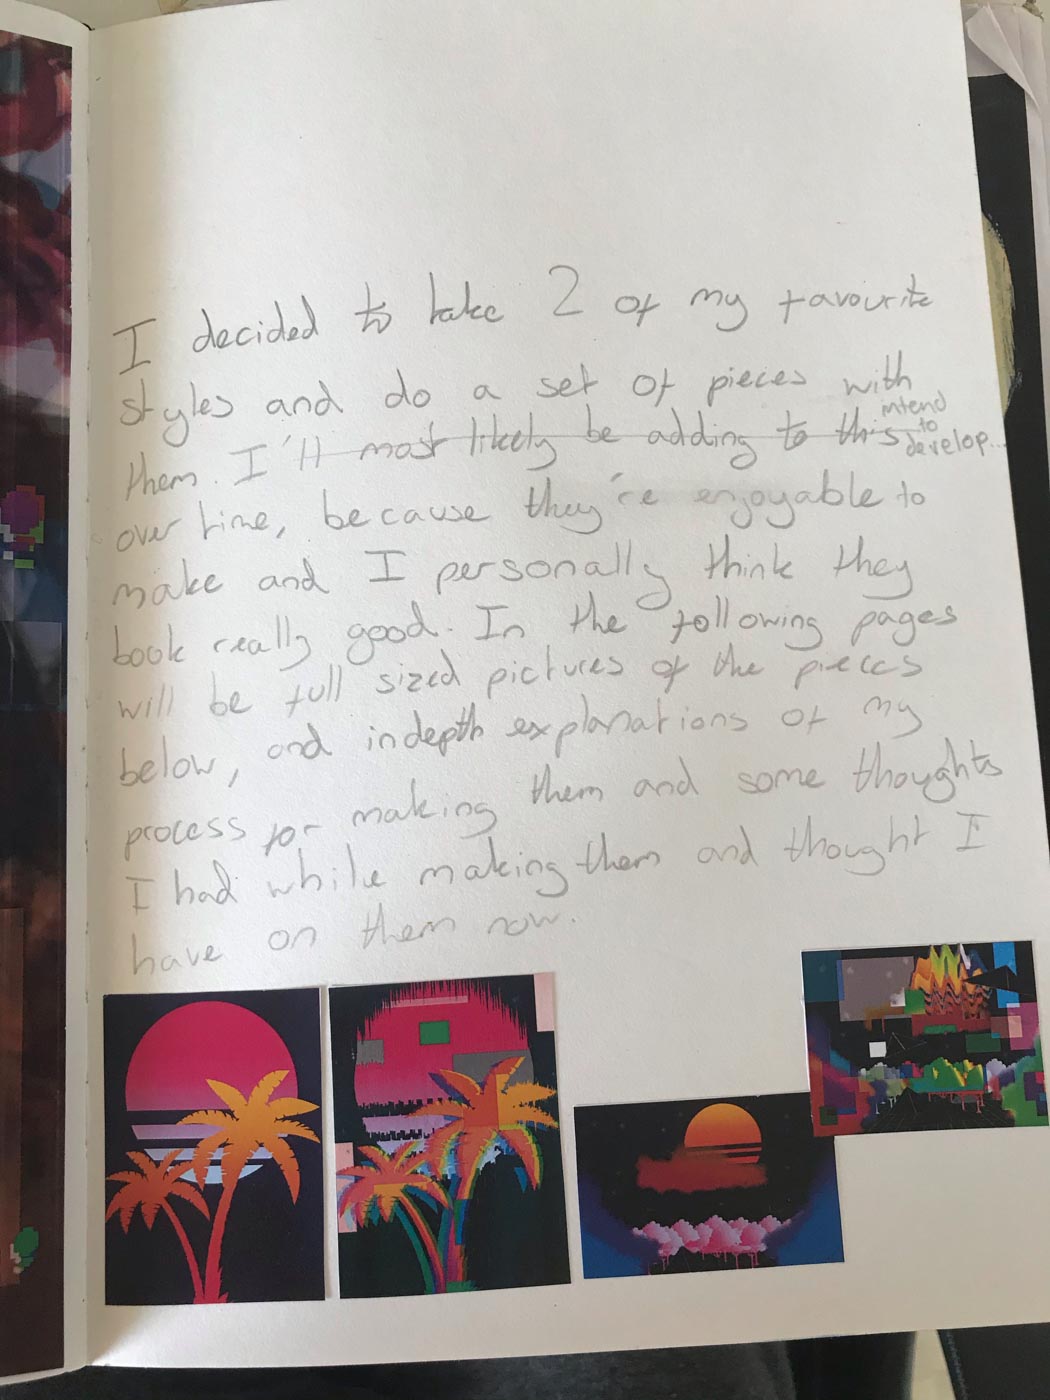 I decided to take 2 of my favourite
styles and do a set of pieces with
them. I'll most likely be adding to this intend to develop...
over time, because they're enjoyable to
make and I personally think they
book really good. In the following pages
will be full sized pictures of the pieces
below, and indepth explanations of my
process for making them and some thoughts
I had while making them and thought I
have on them now.